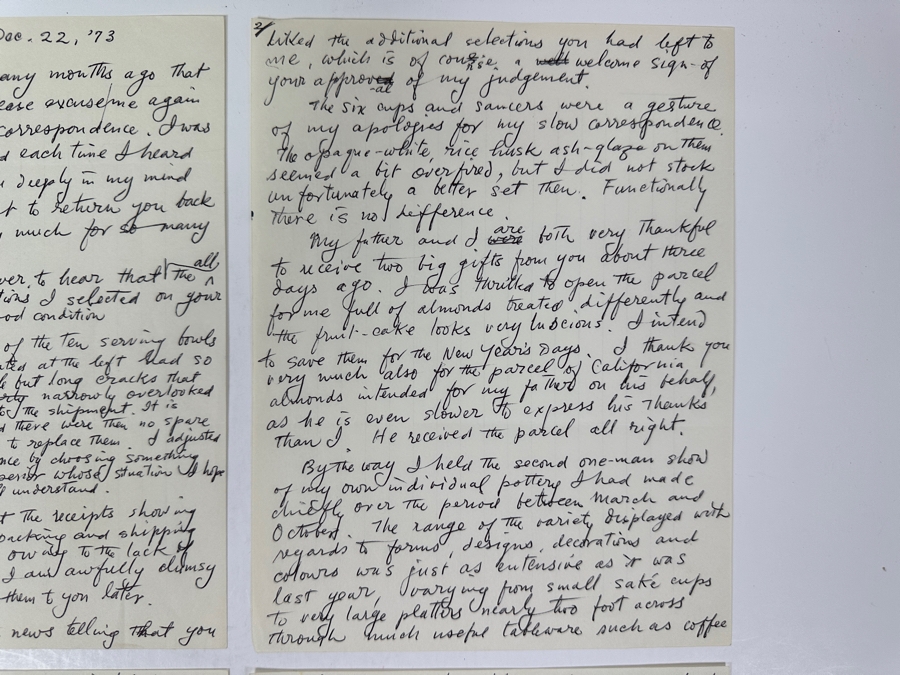 Dec. 22, '73
any months ago that
ease excuse me again
correspondence. I was
d each time I heard
deeply in my mind
t to return you back
much for so many
ver to hear that the all
tions I selected on your
ood condition
of the ten serving bowls
ated at the left had so
but long cracks that
narrowly overlooked
the shipment. It is
d there were then no spare
to replace them. I adjusted
nce by choosing something
perior whose situation I hope
understand.
t the receipts showing
packing and shipping
owing to the lack of
I am awfully clumsy
them to you later.
news telling that you
2/
liked the additional selections you had left to
me, which is of course a welcome sign of
your approval of my judgement.
The six cups and saucers were a gesture
of my apologies for my slow correspondence.
The opaque-white, rice husk ash-glaze on them
seemed a bit overfired, but I did not stock
unfortunately a better set then. Functionally
there is no difference.
My father and I are both very thankful
to receive two big gifts from you about three
days ago. I was thrilled to open the parcel
for me full of almonds treated differently and
the fruit-cake looks very luscious. I intend
to save them for the New Year's Days. I thank you
very much also for the parcel of California
almonds intended for my father on his behalf,
as he is even slower to express his thanks
than I. He received the parcel all right.
By the way I held the second one-man show
of my own individual pottery I had made
chiefly over the period between March and
October. The range of the variety displayed with
regards to forms, designs, decorations and
colours was just as extensive as it was
last year, varying from small saké cups
to very large platters nearly two foot across
through much useful tableware such as coffee